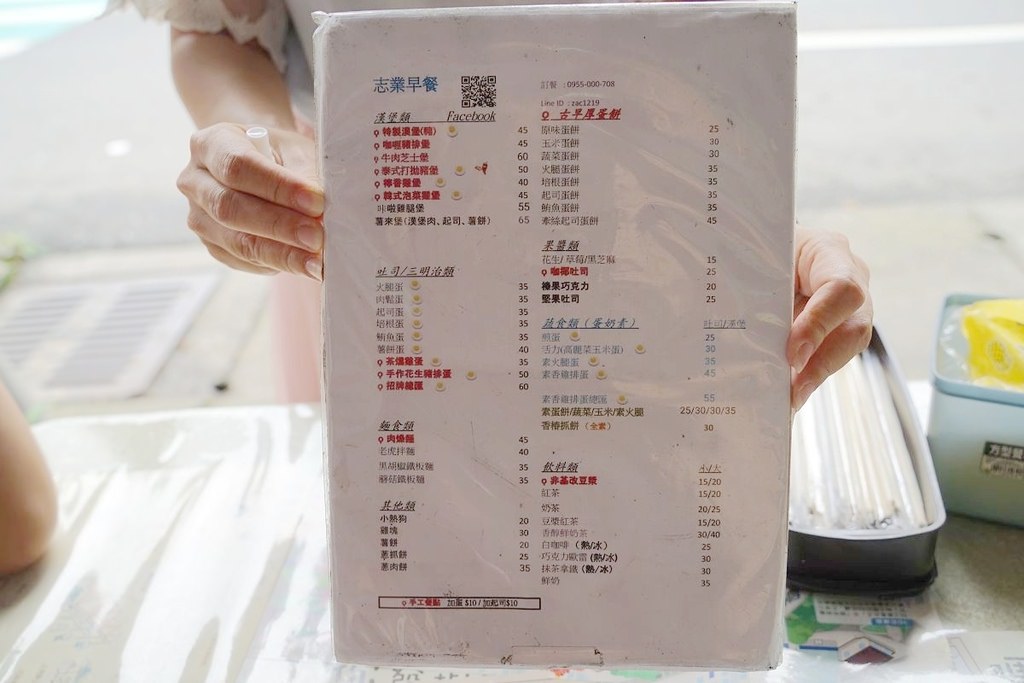 志業早餐
Facebook
訂餐 : 0955-000-708
Line ID : zac1219
漢堡類
特製漢堡(豬) 45
咖哩豬排堡 45
牛肉芝士堡 60
泰式打拋豬堡 50
檸香雞堡 40
韓式泡菜雞堡 45
卡啦雞腿堡 55
薯來堡(漢堡肉、起司、薯餅) 65
吐司/三明治類
火腿蛋 35
肉鬆蛋 35
起司蛋 35
培根蛋 35
鮪魚蛋 35
薯餅蛋 40
茶燻雞蛋 35
手作花生豬排蛋 50
招牌總匯 60
麵食類
肉燥麵 45
老虎拌麵 40
黑胡椒鐵板麵 35
蘑菇鐵板麵 35
其他類
小熱狗 20
雞塊 30
薯餅 20
蔥抓餅 25
蔥肉餅 35
手工餐點 加蛋 $10 / 加起司$10
古早厚蛋餅
原味蛋餅 25
玉米蛋餅 30
蔬菜蛋餅 30
火腿蛋餅 35
培根蛋餅 35
起司蛋餅 35
鮪魚蛋餅 35
牽絲起司蛋餅 45
果醬類
花生/ 草莓/黑芝麻 15
咖椰吐司 25
榛果巧克力 20
堅果吐司 25
蔬食類 (蛋奶素) 吐司/漢堡
煎蛋 25
活力(高麗菜玉米蛋) 30
素火腿蛋 35
素香雞排蛋 45
素香雞排蛋總匯 55
素蛋餅/蔬菜/玉米/素火腿 25/30/30/35
香椿抓餅 (全素) 30
飲料類 小/大
非基改豆漿 15/20
紅茶 15/20
奶茶 20/25
豆漿紅茶 15/20
香醇鮮奶茶 30/40
白咖啡 (熱/冰) 25
巧克力歐蕾 (熱/冰) 30
抹茶拿鐵 (熱/冰) 30
鮮奶 35